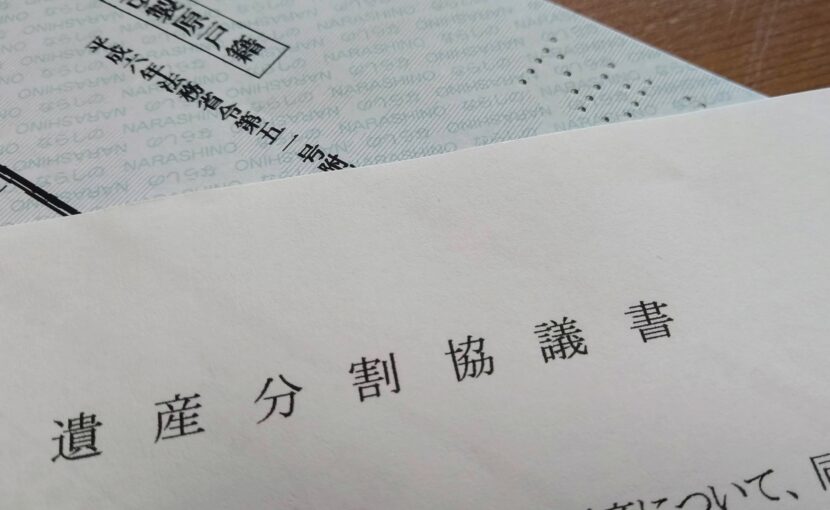 製原戸籍
平成六年法務省令第五一号附
NARASHINO ならしの NARASHINO ならしの
遺産分割協議書
について、同